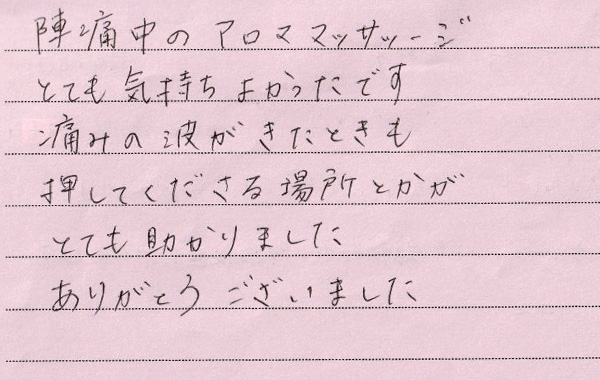 陣痛中の アロママッサッージ
とても 気持ち よかったです
痛みの 波が きたときも
押してくださる 場所 とかが
とても 助かりました
ありがとう ございました